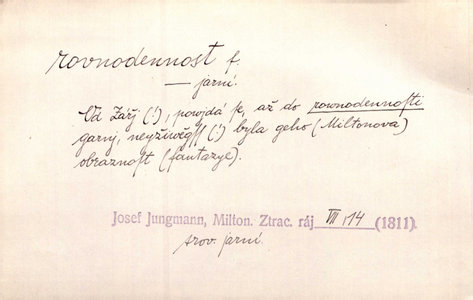 rovnodennost f.
— jarní.
Od Zářj (!), powjdá se, až do rownodennosti
garnj, neyžiwěgssj (!) byla geho (Miltonova)
obraznost (fantazye).
Josef Jungmann, Milton. Ztrac. ráj VII, 14 (1811).
srov. jarní.